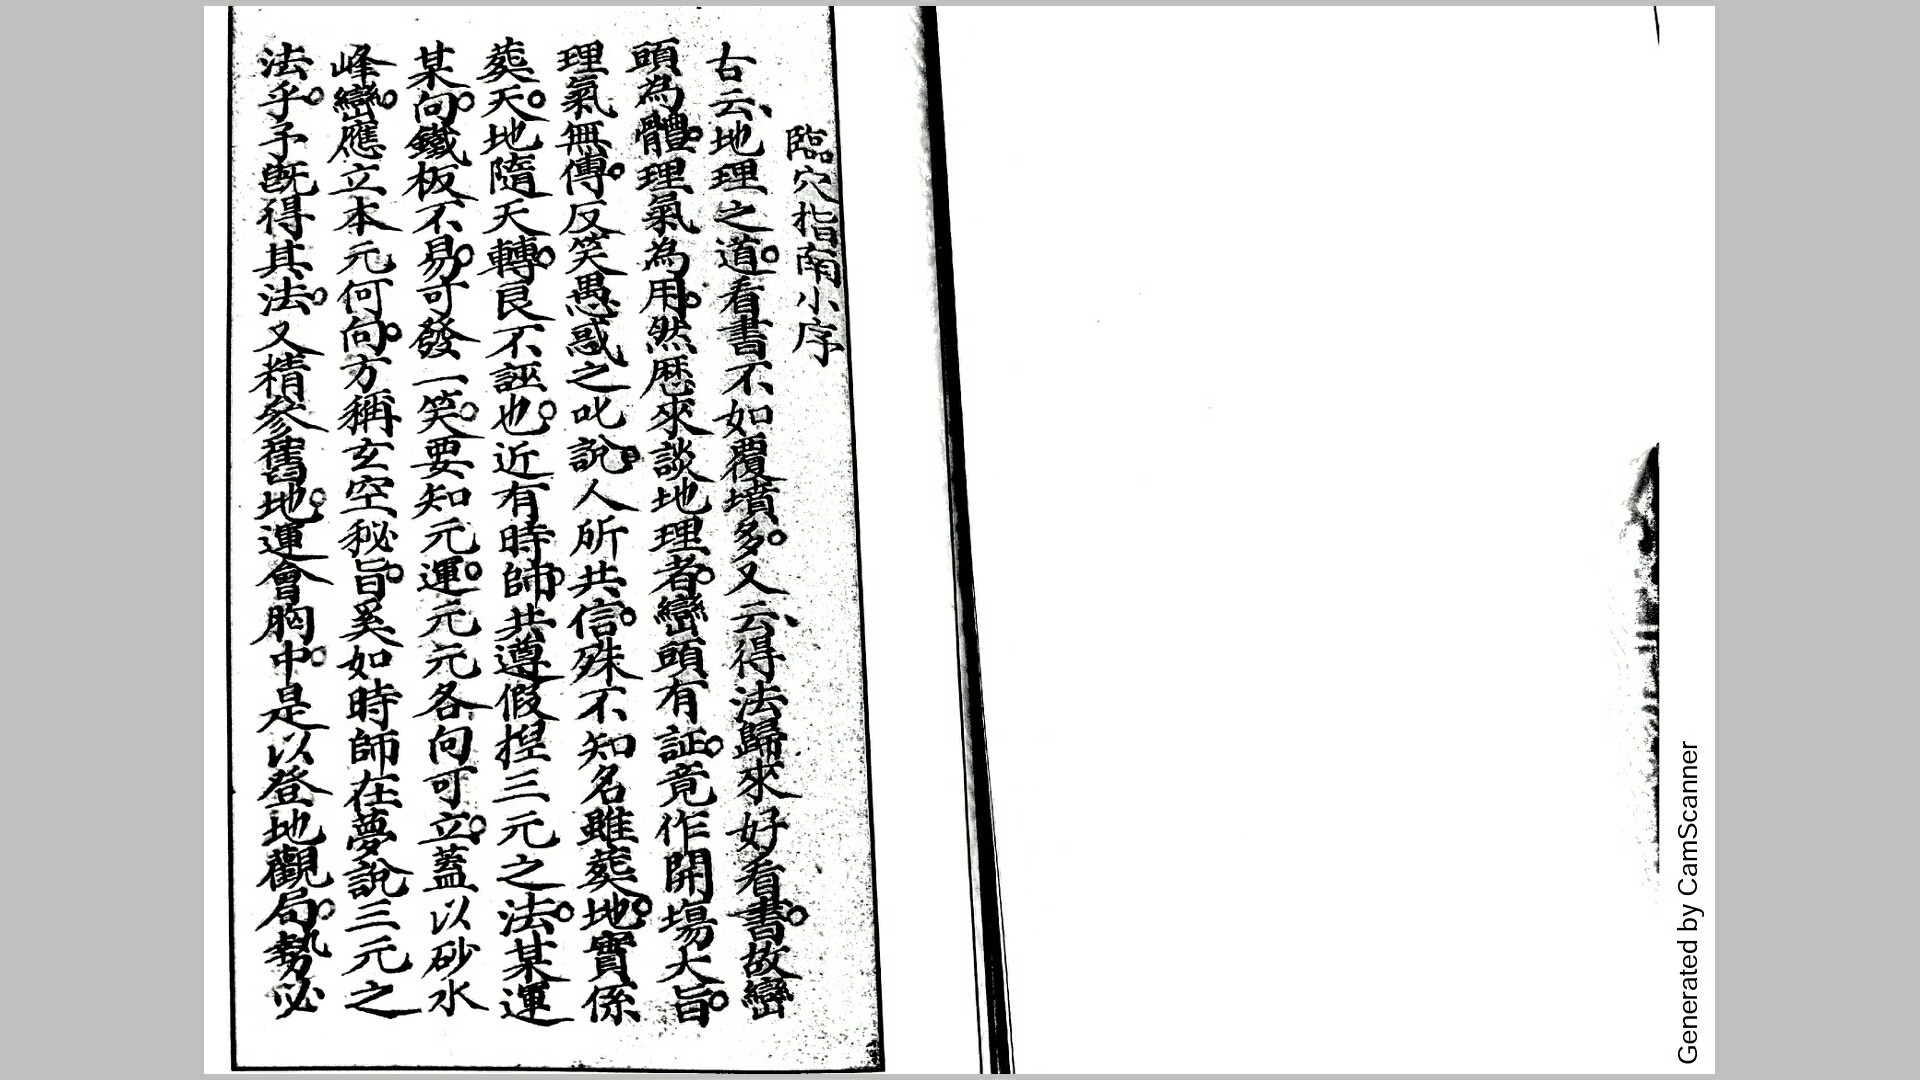 臨穴指南小序
古云、地理之道。看書不如覆墳多。又云、得法歸來好看書。故巒
頭為體。理氣為用。然歷來談地理者。巒頭有証。竟作開場大旨。
理氣無傳。反笑愚惑之叱說。人所共信。殊不知名雖葬地。實係
葬天。地隨天轉。良不誣也。近有時師。共遵假捏三元之法。某運
某向。鐵板不易。可發一笑。要知元運。元元各向可立。蓋以砂水
峰巒。應立本元何向。方稱玄空秘旨。奚如時師在夢說三元之
法乎。予既得其法。又精參舊地。運會胸中。是以登地觀局。勢必
Generated by CamScanner